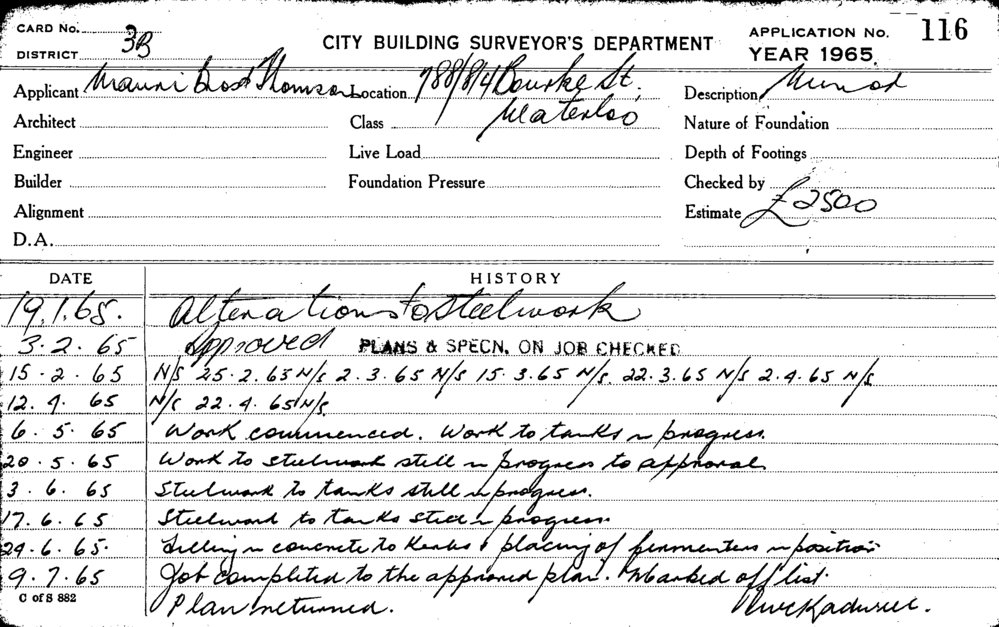 CARD No.
DISTRICT 3B
CITY BUILDING SURVEYOR'S DEPARTMENT
APPLICATION No. 116
YEAR 1965.
Applicant Mauri Bros Thomson Location 788/814 Bourke St, Description Minor
Waterloo
Architect Class Nature of Foundation
Engineer Live Load Depth of Footings
Builder Foundation Pressure Checked by
Alignment Estimate £2500
D.A.
DATE HISTORY
19.1.65. Alterations to Steelwork
3.2.65 Approved PLANS & SPECN. ON JOB CHECKED
15.2.65 N/S 25.2.65 N/S 2.3.65 N/S 15.3.65 N/S. 22.3.65 N/S 2.4.65 N/S
12.4.65 N/S 22.4.65 N/S
6.5.65 Work commenced. Work to tanks in progress.
20.5.65 Work to steelwork still in progress to approval
3.6.65 Steelwork to tanks still in progress.
17.6.65 Steelwork to tanks still in progress.
29.6.65. Filling in concrete to kerbs & placing of fermenters in position
9.7.65 Job completed to the approved plan. Marked off list.
C of S 882 Plan returned.